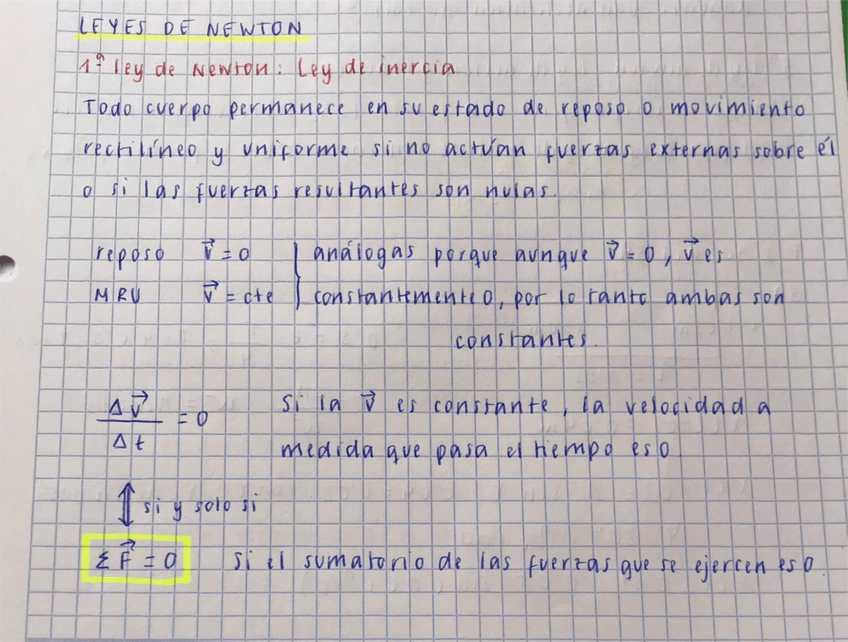 LEYES DE NEWTON
1ª ley de Newton: Ley de inercia
Todo cuerpo permanece en su estado de reposo o movimiento
rectilíneo y uniforme si no actúan fuerzas externas sobre él
o si las fuerzas resultantes son nulas.
reposo v⃗ = 0 } análogas porque aunque v⃗ = 0, v⃗ es
MRU v⃗ = cte } constantemente 0, por lo tanto ambas son
constantes.
Δv⃗ / Δt = 0 Si la v⃗ es constante, la velocidad a
medida que pasa el tiempo es 0
⇕ si y solo si
Σ F⃗ = 0 si el sumatorio de las fuerzas que se ejercen es 0